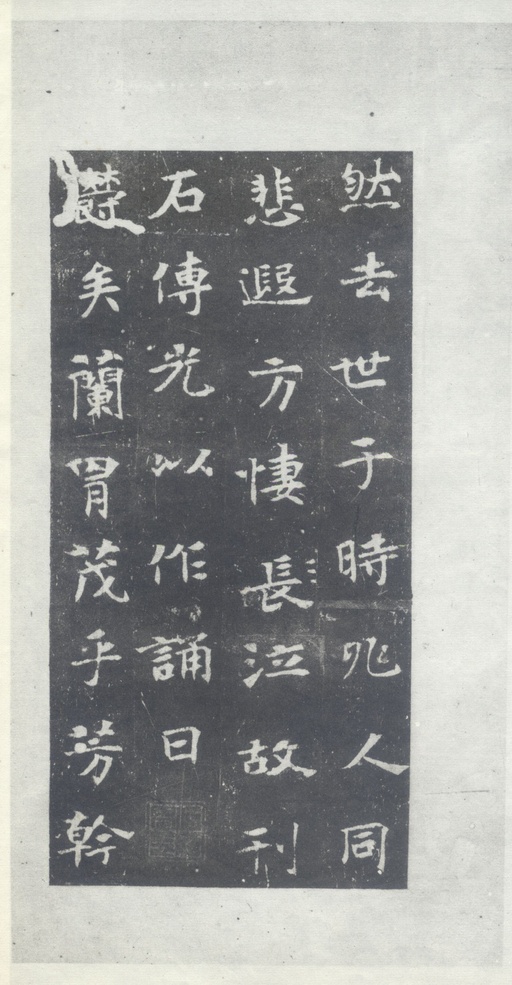 然去世于時兆人同
悲遐方悽長泣故刊
石傳光以作誦曰
欝矣蘭胄茂乎芳幹